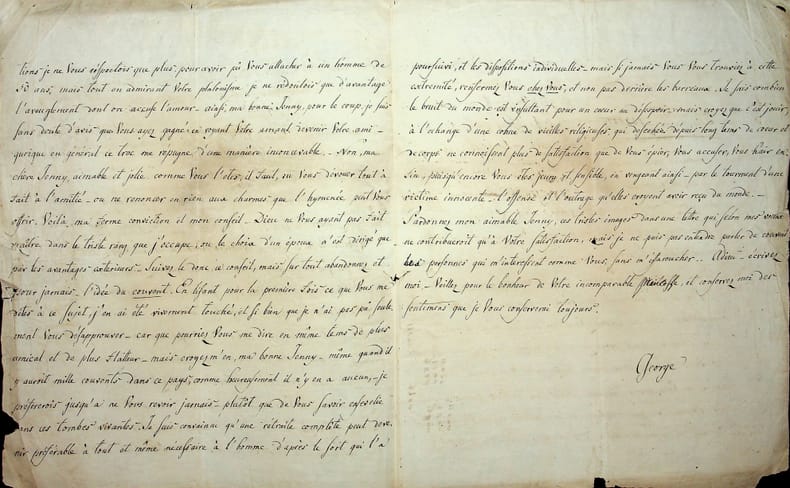 tions je ne Vous respectois que plus, pour avoir pû Vous attacher à un homme de
50 ans, mais tout en admirant Votre platonisme je ne redoutois que d'avantage
l'aveuglement dont on accuse l'amour — ainsi, ma bonne Jenny, pour le coup, je suis
sans doute d'avis que Vous ayez gagné en voyant Votre amant devenir Votre ami —
quoique en général ce troc me repugne d'une manière inconcevable. — Non, ma
chère Jenny, aimable et jolie comme Vous l'etes, il faut, ou Vous dévouer tout à
fait à l'amitié — ou ne renoncer en rien aux charmes que l'hymenée peut Vous
offrir. Voilà, ma ferme conviction et mon conseil — Dieu ne Vous ayant pas fait
naitre dans le triste rang que j'occupe, ou le choix d'un époux n'est dirigé que
par les avantages exterieurs — Suivez le donc, ce conseil, mais sur tout abandonnez et
pour jamais — l'idée du couvent. En lisant pour la première fois ce que Vous me
dites à ce sujet, j'en ai été vivement touché, et si bien que je n'ai pas pû seule
ment Vous désapprouver — car que pourriez Vous me dire en même tems de plus
amical et de plus flatteur — mais croyez m'en, ma bonne Jenny — même quand il
y auroit mille couvents dans ce pays, comme heureusement il n'y en a aucun, — je
préfererois jusqu'a ne Vous revoir jamais — plutôt que de Vous savoir ensevelie
dans ces tombes vivantes. Je suis convaincu qu'une retraite complète peut deve
nir préférable à tout et même nécessaire à l'homme d'après le sort qui l'a
poursuivi, et les dispositions individuelles — mais si jamais Vous Vous trouviez à cette
extremité, renfermez Vous chez Vous, et non pas derrière les barreaux. Je sais combien
le bruit du monde est insultant pour un cœur au désespoir — mais croyez que c'est jouir,
à l'échange d'une cohue de vieilles religieuses, qui dessechées depuis long tems de cœur et
de corps ne connoissent plus de satisfaction que de Vous épier, Vous accuser, Vous haïr en
fin, puisqu'encore Vous êtes jeune et sensible, en vengeant ainsi — par le tourment d'une
victime innocente — l'offense et l'outrage qu'elles croyent avoir reçu du monde. —
Pardonnez mon aimable Jenny, ces tristes images dans une lettre qui selon mes vœux
ne contribueroit qu'à Votre satisfaction, mais je ne puis pas entendre parler de couvent
les personnes qui m'interessent comme Vous, sans m'effaroucher. — Adieu — écrivez
moi — Veillez pour le bonheur de Votre incomparable, et conservez moi des
sentimens que je Vous conserverai toujours.
George